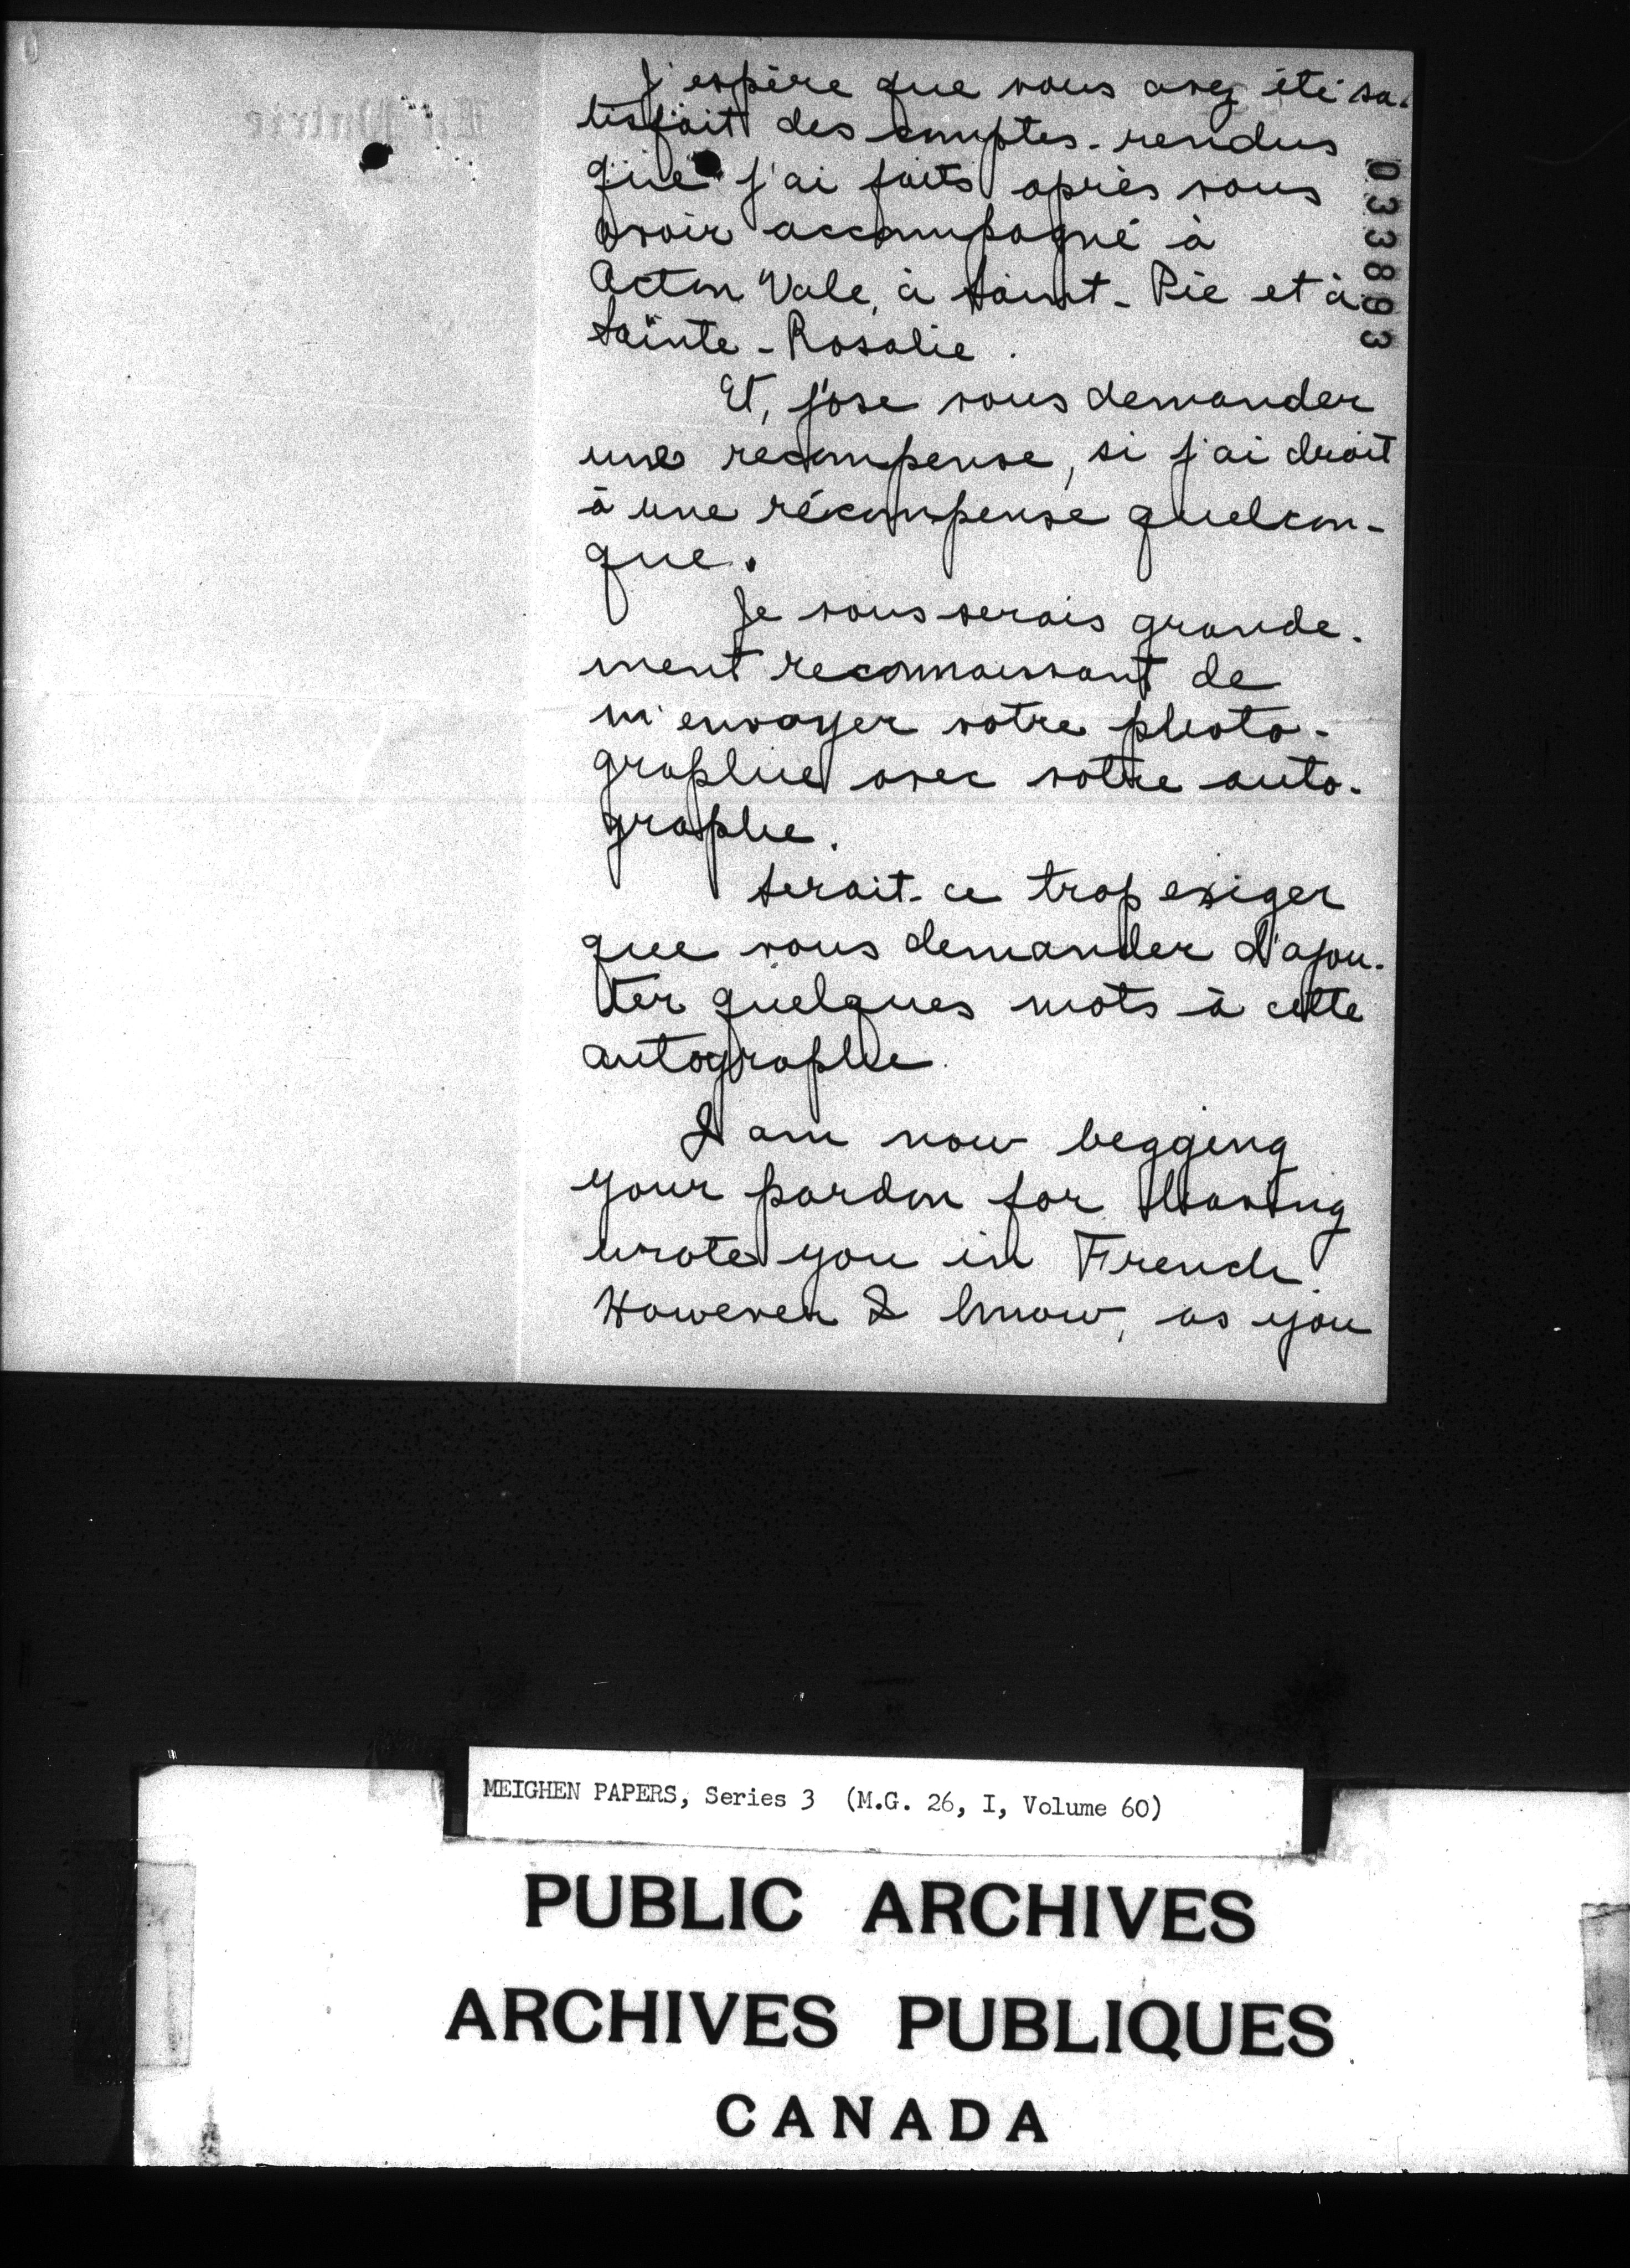 J'espère que vous avez été sa-
tisfait des comptes-rendus
que j'ai faits après vous
avoir accompagné à
Acton Vale, à Saint-Pie et à
Sainte-Rosalie.
Et, j'ose vous demander
une recompense, si j'ai droit
à une récompense quelcon-
que.
Je vous serais grande-
ment reconnaissant de
m'envoyer votre photo-
graphie avec votre auto-
graphe.
Serait-ce trop exiger
que vous demander d'ajou-
ter quelques mots à cette
autographe.
I am now begging
your pardon for having
wrote you in French
However I know, as you
033893
La Patrie
MEIGHEN PAPERS, Series 3 (M.G. 26, I, Volume 60)
PUBLIC ARCHIVES
ARCHIVES PUBLIQUES
CANADA